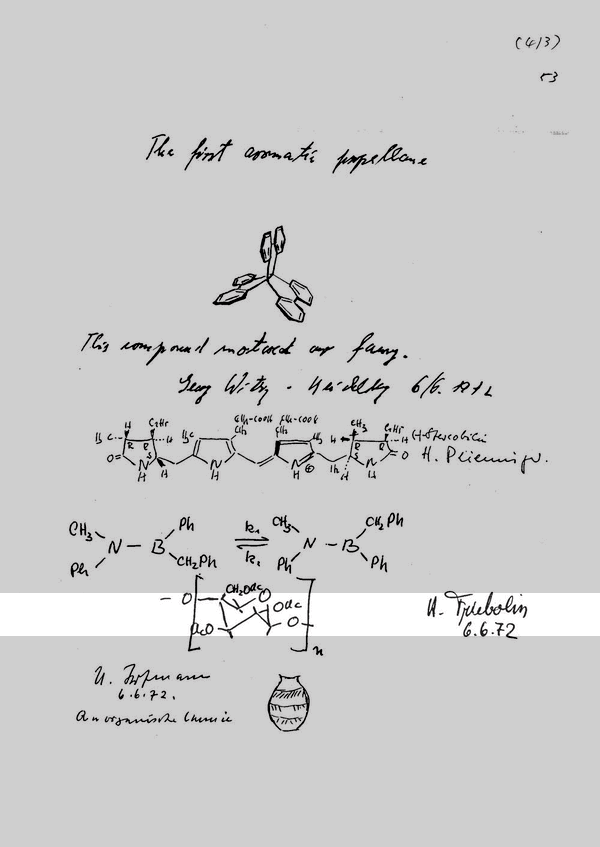 (413)
53
The first aromatic propellane
This compound mustered our fancy.
Georg Wittig - Heidelberg 6/6. 1972
H H₃C C₂H₅ H H₃C CH₂-COOH CH₂ CH₂-COOH CH₂ CH₃ CH₃ H C₂H₅ H
O= R R S N H H N H N H ⊕ H₂ S R R N H O
H. Plieninger.
CH₃ Ph N — B Ph CH₂Ph k₁ k₂ CH₃ Ph N — B CH₂Ph Ph
– O CH₂OAc O OAc AcO O – n
H. Friebolin
6.6.72
U. Hofmann
6.6.72.
Anorganische Chemie